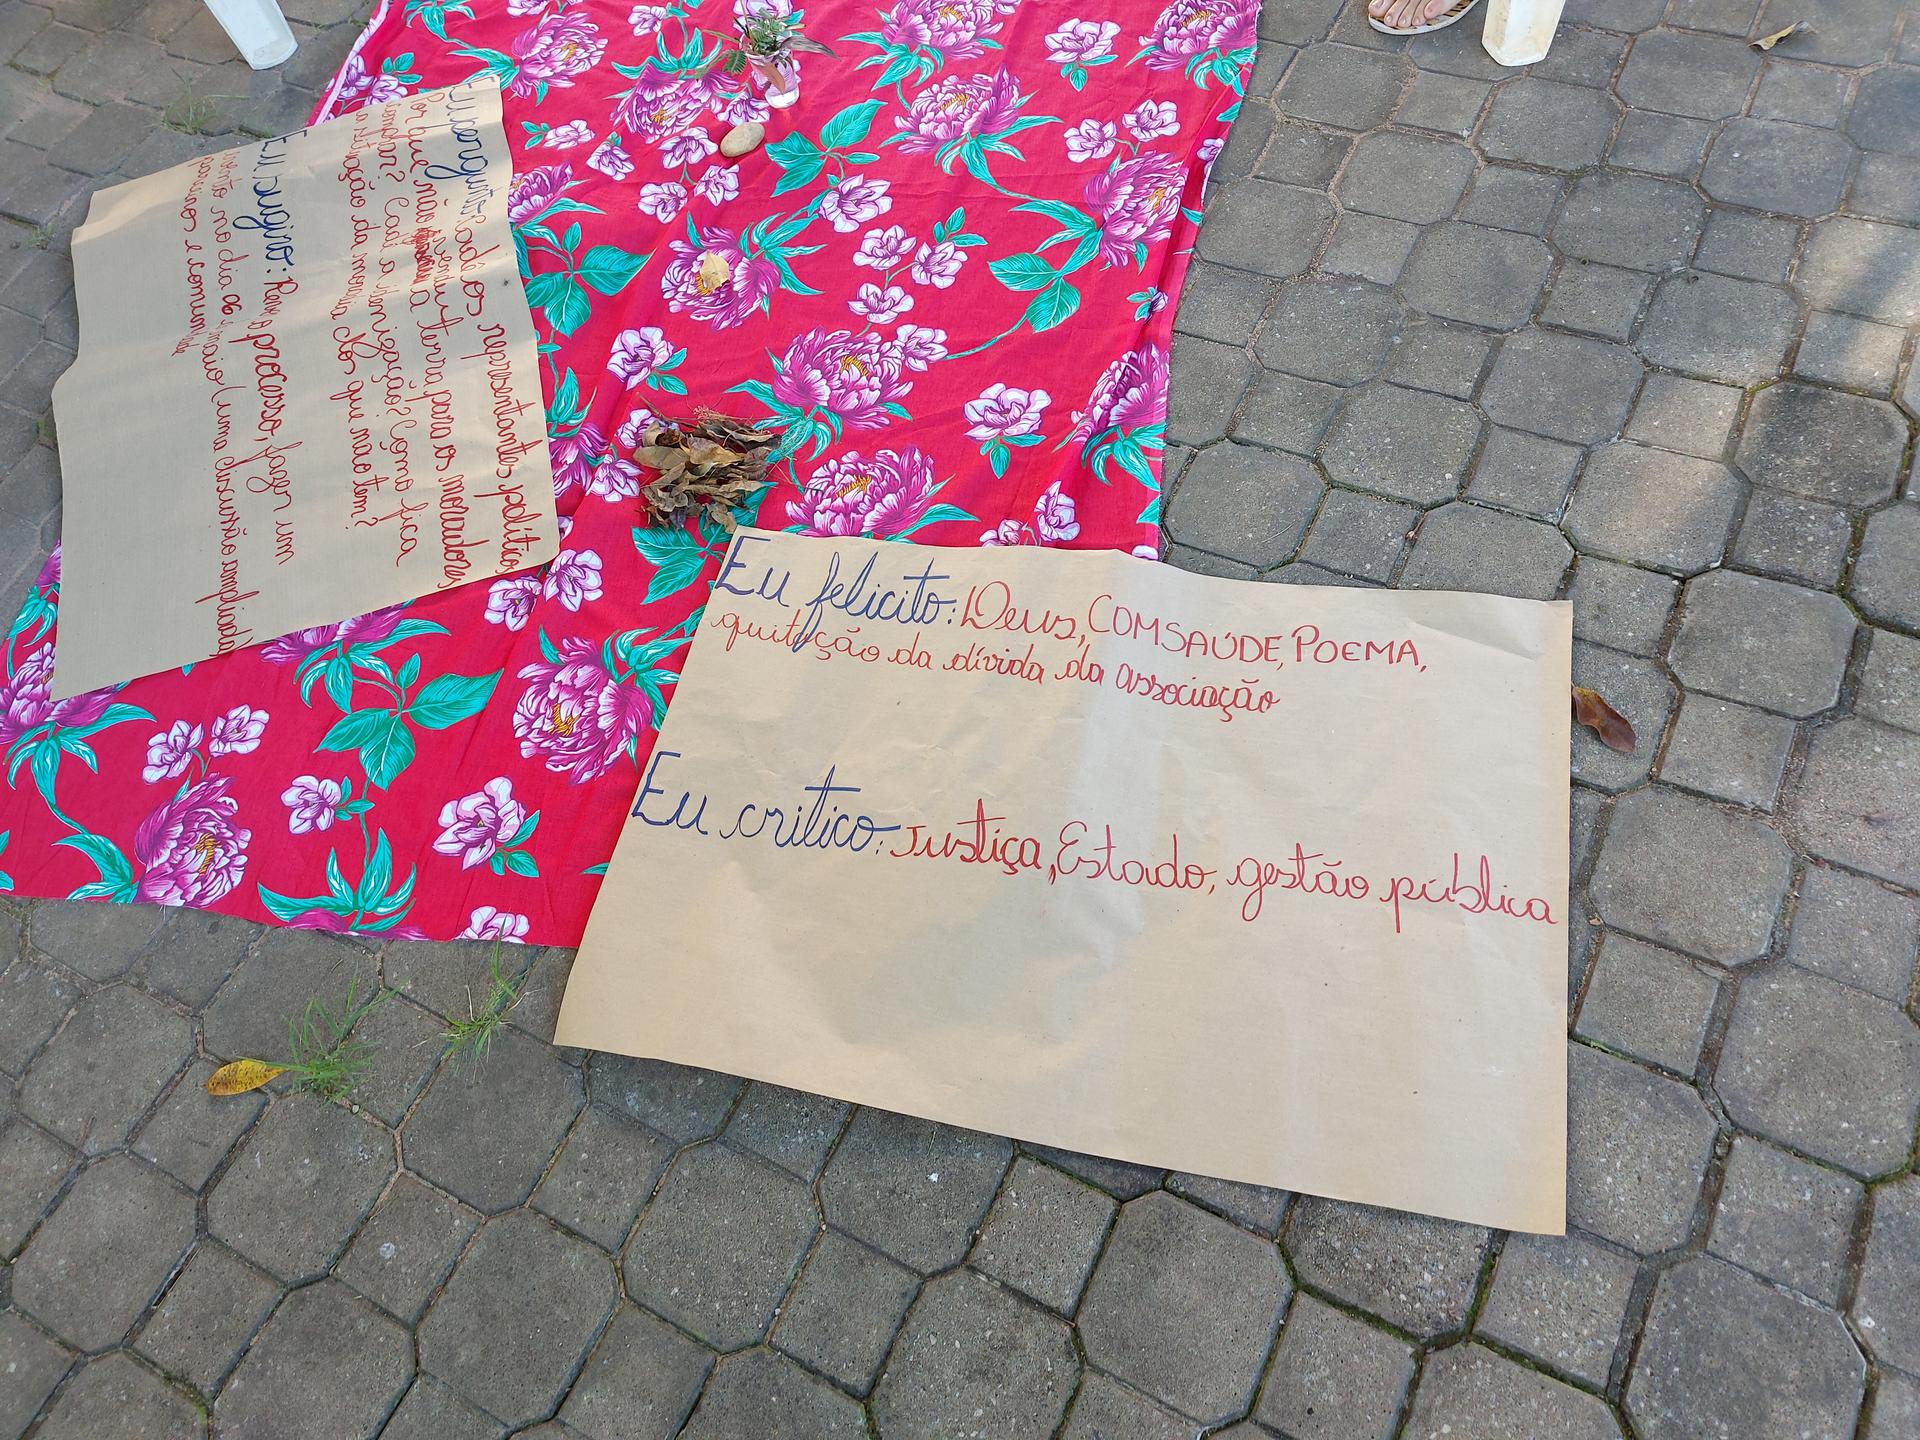 Eu pergunto: cadê os representantes políticos
Por que não vendeu a terra para os moradores
comprar? Cadê a idenização? Como fica
a situação da moradia dos que não tem?
Eu sugiro: Rever o processo, fazer um
evento no dia 26 maio/uma discussão ampliada/
parceiros e comunidade
Eu felicito: Deus, COMSAÚDE, POEMA,
quitação da dívida da associação
Eu critico: Justiça, Estado, gestão pública